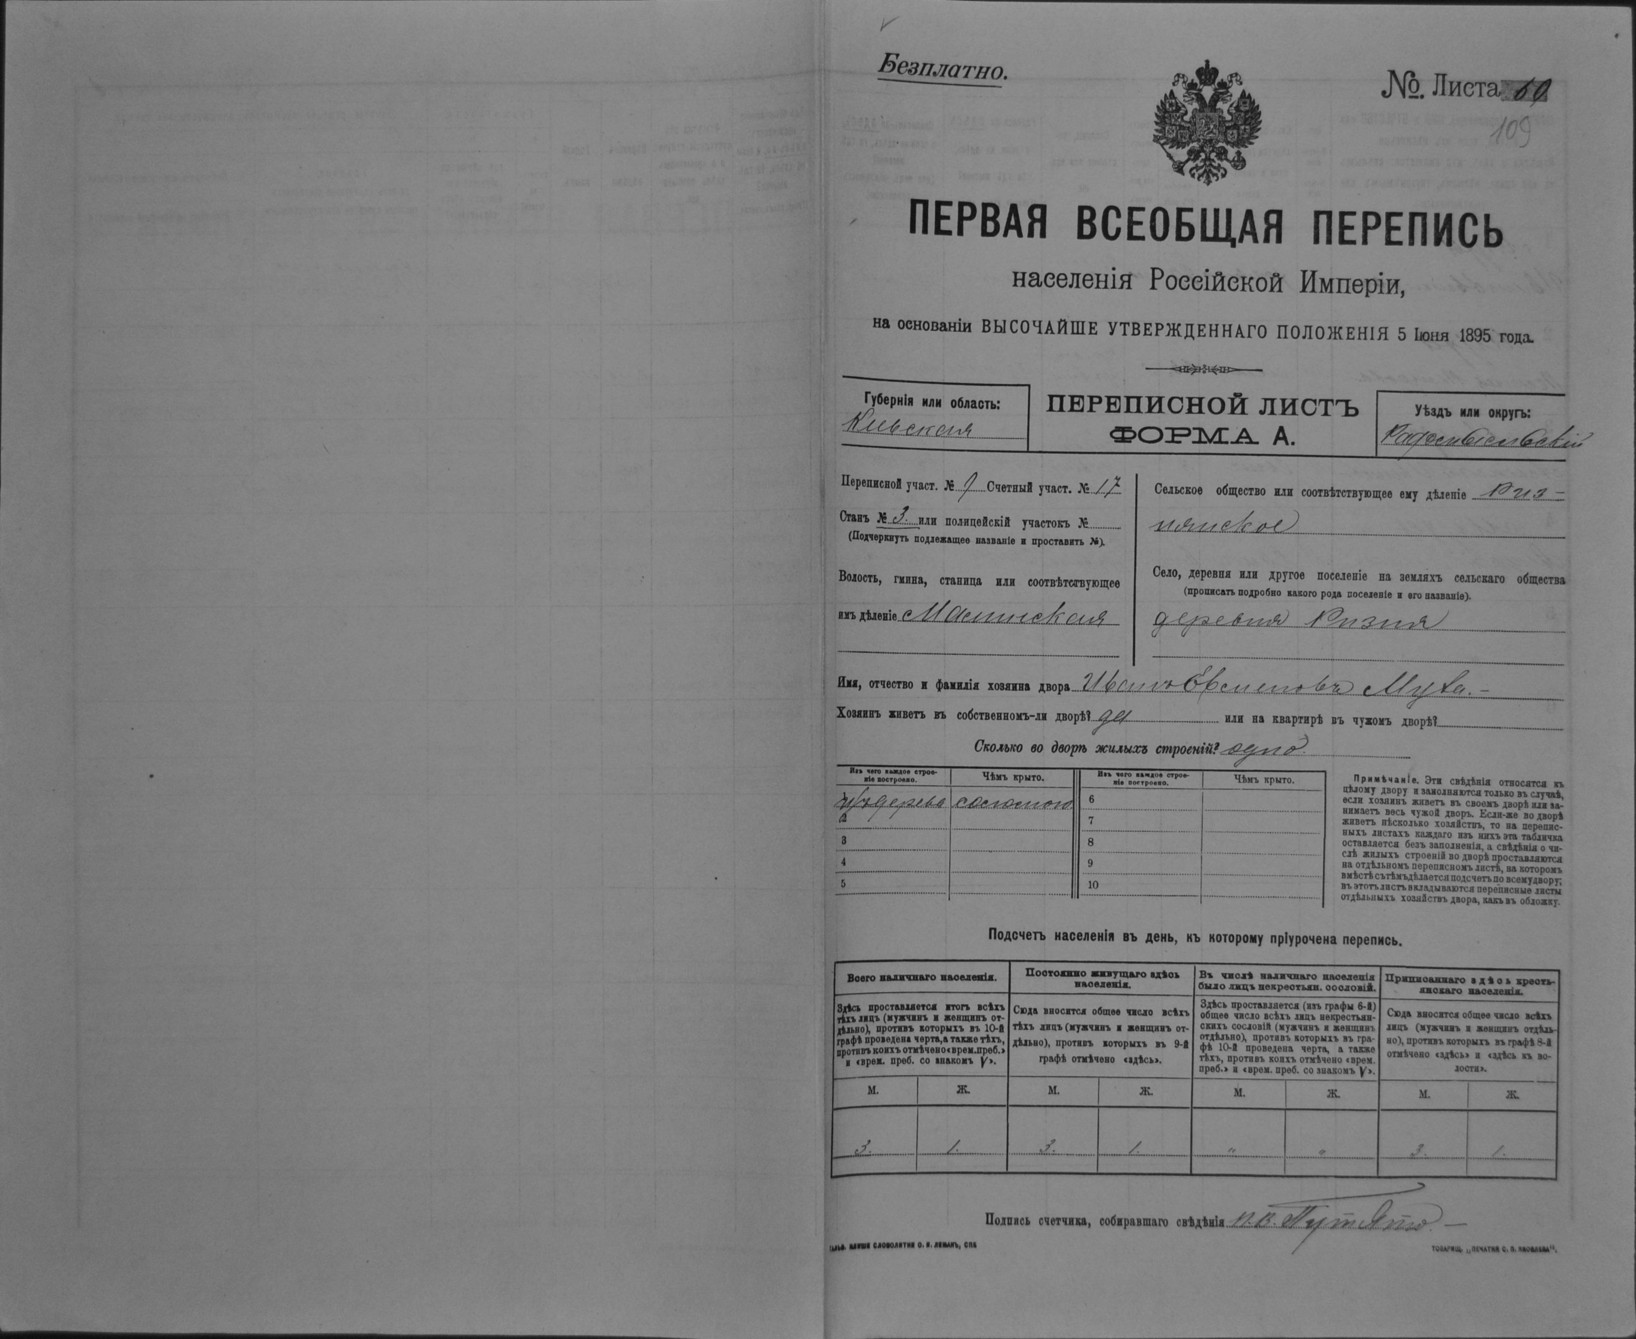 Безплатно.
№. Листа 60
109
ПЕРВАЯ ВСЕОБЩАЯ ПЕРЕПИСЬ
населенія Россійской Имперіи,
на основаніи ВЫСОЧАЙШЕ УТВЕРЖДЕННАГО ПОЛОЖЕНІЯ 5 Іюня 1895 года.
Губернія или область:
Кіевская
ПЕРЕПИСНОЙ ЛИСТЪ
ФОРМА А.
Уѣздъ или округъ:
Радомысльскій
Переписной участ. № 1 Счетный участ. № 17
Станъ № 3. или полицейскій участокъ №
(Подчеркнуть подлежащее названіе и проставить №).
Волость, гмина, станица или соотвѣтствующее
имъ дѣленіе Малинская
Сельское общество или соотвѣтствующее ему дѣленіе Риз-
нянское
Село, деревня или другое поселеніе на земляхъ сельскаго общества
(прописать подробно какого рода поселеніе и его названіе).
деревня Ризня
Имя, отчество и фамилія хозяина двора Иванъ Евсиеновъ Муха. -
Хозяинъ живетъ въ собственномъ-ли дворѣ? да или на квартирѣ въ чужомъ дворѣ?
Сколько во дворѣ жилыхъ строеній? одно.
Изъ чего каждое строе-
ніе построено.
Чѣмъ крыто.
Изъ чего каждое строе-
ніе построено.
Чѣмъ крыто.
изъ дерева соломою 6
2 7
3 8
4 9
5 10
Примѣчаніе. Эти свѣдѣнія относятся къ
цѣлому двору и заполняются только въ случаѣ,
если хозяинъ живетъ въ своемъ дворѣ или за-
нимаетъ весь чужой дворъ. Если-же во дворѣ
живетъ нѣсколько хозяйствъ, то на перепис-
ныхъ листахъ каждаго изъ нихъ эта табличка
оставляется безъ заполненія, а свѣдѣнія о чи-
слѣ жилыхъ строеній во дворѣ проставляются
на отдѣльномъ переписномъ листѣ, на которомъ
вмѣстѣ съ тѣмъ дѣлается подсчетъ по всему двору;
въ этотъ листъ вкладываются переписные листы
отдѣльныхъ хозяйствъ двора, какъ въ обложку.
Подсчетъ населенія въ день, къ которому пріурочена перепись.
Всего наличнаго населенія.
Здѣсь проставляется итогъ всѣхъ
тѣхъ лицъ (мужчинъ и женщинъ от-
дѣльно), противъ которыхъ въ 10-й
графѣ проведена черта, а также тѣхъ,
противъ коихъ отмѣчено «врем. преб.»
и «врем. преб. со знакомъ V».
Постоянно живущаго здѣсь
населенія.
Сюда вносится общее число всѣхъ
тѣхъ лицъ (мужчинъ и женщинъ от-
дѣльно), противъ которыхъ въ 9-й
графѣ отмѣчено «здѣсь».
Въ числѣ наличнаго населенія
было лицъ некрестьян. сословій.
Здѣсь проставляется (изъ графы 6-й)
общее число всѣхъ лицъ некрестьян-
скихъ сословій (мужчинъ и женщинъ
отдѣльно), противъ которыхъ въ гра-
фѣ 10-й проведена черта, а также
тѣхъ, противъ коихъ отмѣчено «врем.
преб.» и «врем. преб. со знакомъ V».
Приписаннаго здѣсь кресть-
янскаго населенія.
Сюда вносится общее число всѣхъ
лицъ (мужчинъ и женщинъ отдѣль-
но), противъ которыхъ въ графѣ 8-й
отмѣчено «здѣсь» и «здѣсь къ во-
лости».
М. Ж. М. Ж. М. Ж. М. Ж.
3. 1. 3. 1. " " 3. 1.
Подпись счетчика, собиравшаго свѣдѣнія
СЛОВОЛИТНЯ О. И. ЛЕМАНЪ, СПБ
ТОВАРИЩ. „ПЕЧАТНЯ С. П. ЯКОВЛЕВА".